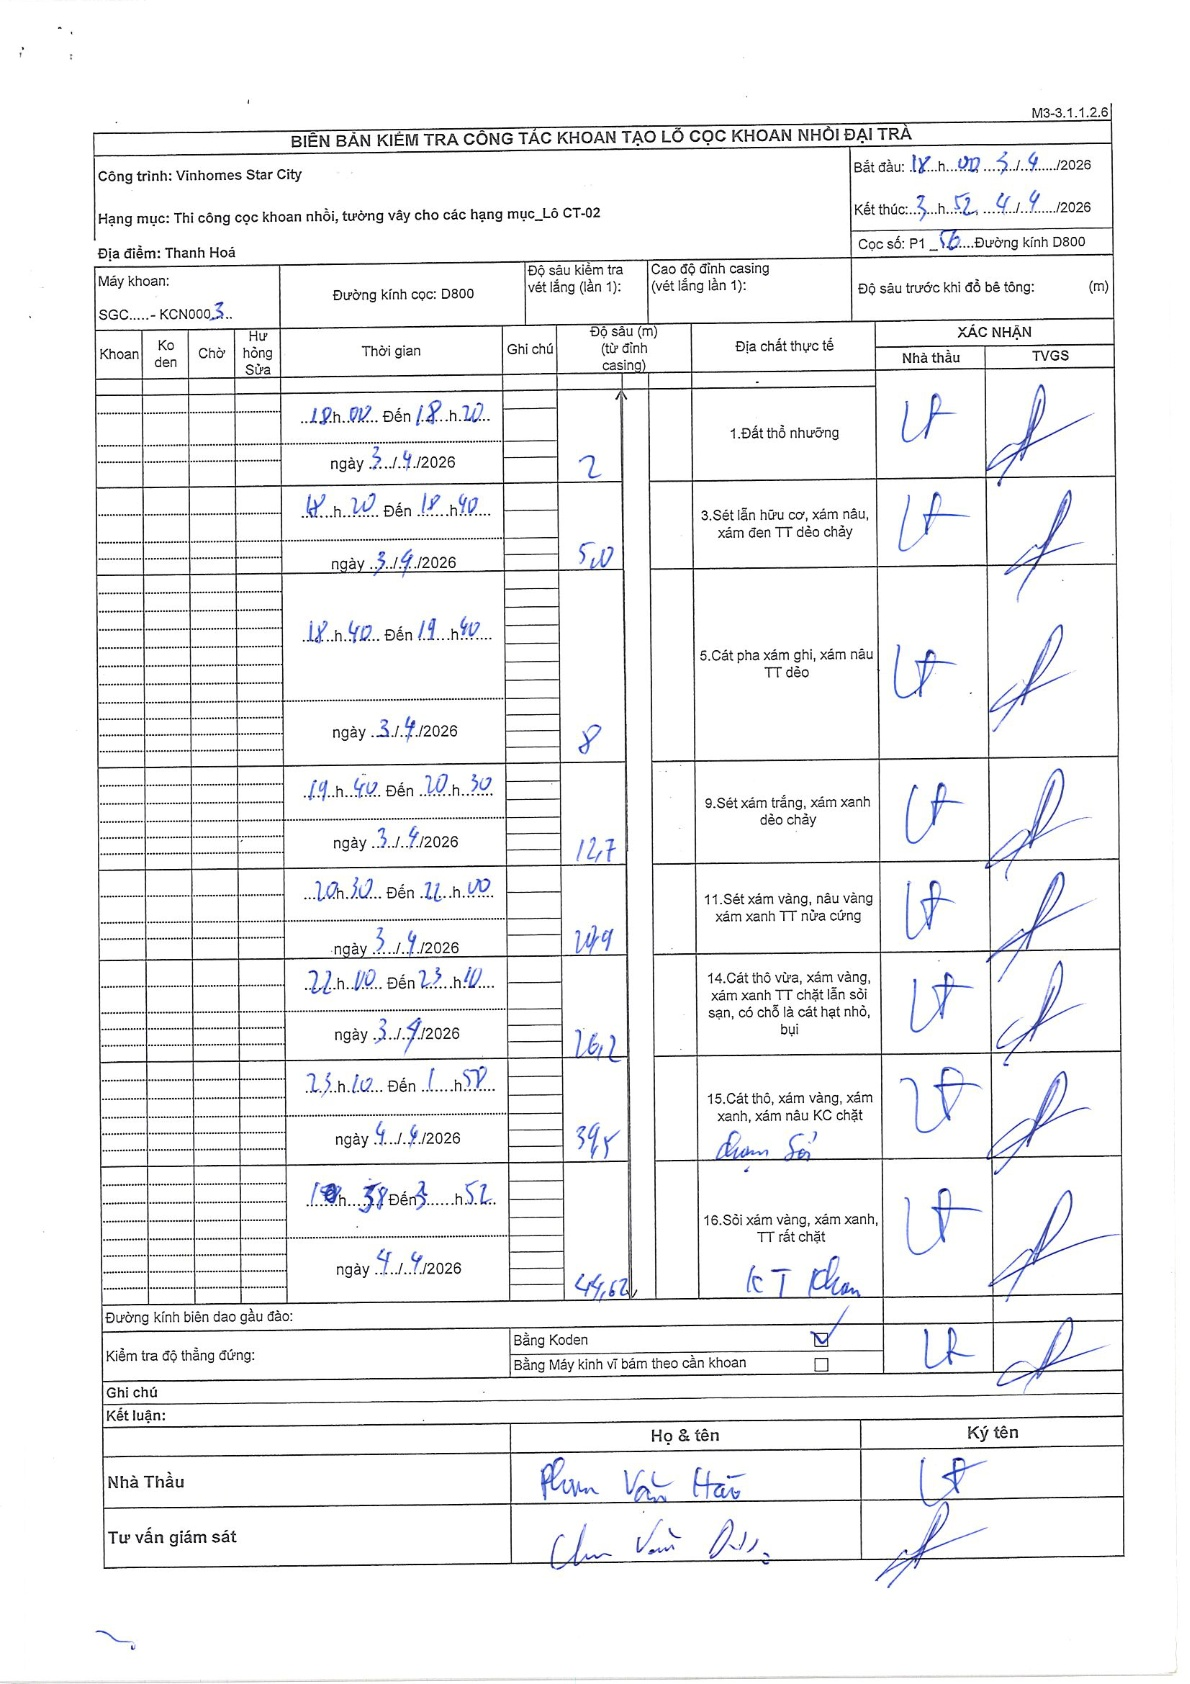 M3-3.1.1.2.6
BIÊN BẢN KIỂM TRA CÔNG TÁC KHOAN TẠO LỖ CỌC KHOAN NHỒI ĐẠI TRÀ
Công trình: Vinhomes Star City
Bắt đầu: 18 h 00 3/4/2026
Hạng mục: Thi công cọc khoan nhồi, tường vây cho các hạng mục_Lô CT-02
Kết thúc: 3 h 52, 4/4/2026
Địa điểm: Thanh Hoá
Cọc số: P1_56 Đường kính D800
Máy khoan:
SGC.....- KCN0003..
Đường kính cọc: D800
Độ sâu kiểm tra vét lắng (lần 1):
Cao độ đỉnh casing (vét lắng lần 1):
Độ sâu trước khi đổ bê tông: (m)
Khoan Ko den Chờ Hư hỏng Sửa Thời gian Ghi chú Độ sâu (m) (từ đỉnh casing) Địa chất thực tế XÁC NHẬN
Nhà thầu TVGS
18 h 00 Đến 18 h 20
ngày 3/4/2026
2
1.Đất thổ nhưỡng
18 h 20 Đến 18 h 40
ngày 3/4/2026
5,0
3.Sét lẫn hữu cơ, xám nâu,
xám đen TT dẻo chảy
18 h 40 Đến 19 h 40
ngày 3/4/2026
8
5.Cát pha xám ghi, xám nâu
TT dẻo
19 h 40 Đến 20 h 30
ngày 3/4/2026
12,7
9.Sét xám trắng, xám xanh
dẻo chảy
20 h 30 Đến 22 h 00
ngày 3/4/2026
11.Sét xám vàng, nâu vàng
xám xanh TT nửa cứng
22 h 00 Đến 23 h 10
ngày 3/4/2026
26,2
14.Cát thô vừa, xám vàng,
xám xanh TT chặt lẫn sỏi
sạn, có chỗ là cát hạt nhỏ,
bụi
23 h 10 Đến 1 h 58
ngày 4/4/2026
39,5
15.Cát thô, xám vàng, xám
xanh, xám nâu KC chặt
Chạm Sỏi
h 58 Đến 3 h 52
ngày 4/4/2026
44,62
16.Sỏi xám vàng, xám xanh,
TT rất chặt
KT Khoan
Đường kính biên dao gầu đào:
Kiểm tra độ thẳng đứng:
Bằng Koden
Bằng Máy kinh vĩ bám theo cần khoan
Ghi chú
Kết luận:
Họ & tên Ký tên
Nhà Thầu
Phạm Văn Hào
Tư vấn giám sát
Chu Văn